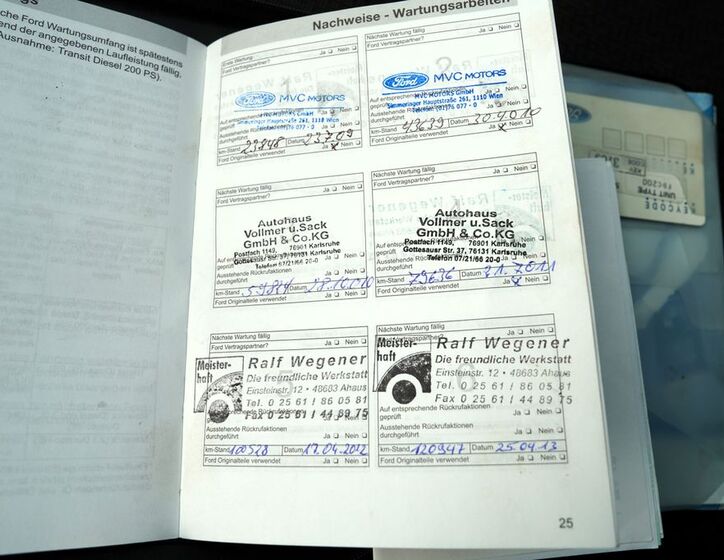 che Ford Wartungsumfang ist spätestens
end der angegebenen Laufleistung fällig.
Ausnahme: Transit Diesel 200 PS).
Nachweise - Wartungsarbeiten
Erste Wartung
Ford Vertragspartner? Ja Nein
Ford MVC MOTORS
MVC MOTORS GmbH
Simmeringer Hauptstraße 261, 1110 Wien
Ausstehende Rückrufaktionen
durchgeführt Ja Nein
km-Stand 23848 Datum 23.7.09
Ford Originalteile verwendet Ja Nein
Nächste Wartung fällig
Ford Vertragspartner? Ja Nein
Ford MVC MOTORS
MVC MOTORS GmbH
Simmeringer Hauptstraße 261, 1110 Wien
Ausstehende Rückrufaktionen
durchgeführt Ja Nein
km-Stand 43639 Datum 30.4.010
Ford Originalteile verwendet Ja Nein
Nächste Wartung fällig
Ford Vertragspartner? Ja Nein
Autohaus
Vollmer u.Sack
GmbH & Co.KG
Postfach 1149, 76901 Karlsruhe
Gottesauer Str. 37, 76131 Karlsruhe
Telefon 07/21/66 20-0
Ausstehende Rückrufaktionen
durchgeführt Ja Nein
km-Stand Datum 28.10.010
Ford Originalteile verwendet Ja Nein
Nächste Wartung fällig
Ford Vertragspartner? Ja Nein
Autohaus
Vollmer u.Sack
GmbH & Co.KG
Postfach 1149, 76901 Karlsruhe
Gottesauer Str. 37, 76131 Karlsruhe
Telefon 07/21/66 20-0
Ausstehende Rückrufaktionen
durchgeführt Ja Nein
km-Stand 79696 Datum 21.7.011
Ford Originalteile verwendet Ja Nein
Nächste Wartung fällig Ja Nein
Ford Vertragspartner? Ja Nein
Meister-
haft
Ralf Wegener
Die freundliche Werkstatt
Einsteinstr. 12 • 48683 Ahaus
Tel. 0 25 61 / 86 05 81
Fax 0 25 61 / 44 89 75
Ausstehende Rückrufaktionen
durchgeführt Ja Nein
km-Stand 100528 Datum 17.04.2012
Ford Originalteile verwendet Ja Nein
Nächste Wartung fällig Ja Nein
Ford Vertragspartner? Ja Nein
Meister-
haft
Ralf Wegener
Die freundliche Werkstatt
Einsteinstr. 12 • 48683 Ahaus
Tel. 0 25 61 / 86 05 81
Fax 0 25 61 / 44 89 75
Auf entsprechende Rückrufaktionen
geprüft Ja Nein
Ausstehende Rückrufaktionen
durchgeführt Ja Nein
km-Stand 120947 Datum 25.04.13
Ford Originalteile verwendet Ja Nein
25
Ford
UNIT TYPE
KEYCODE